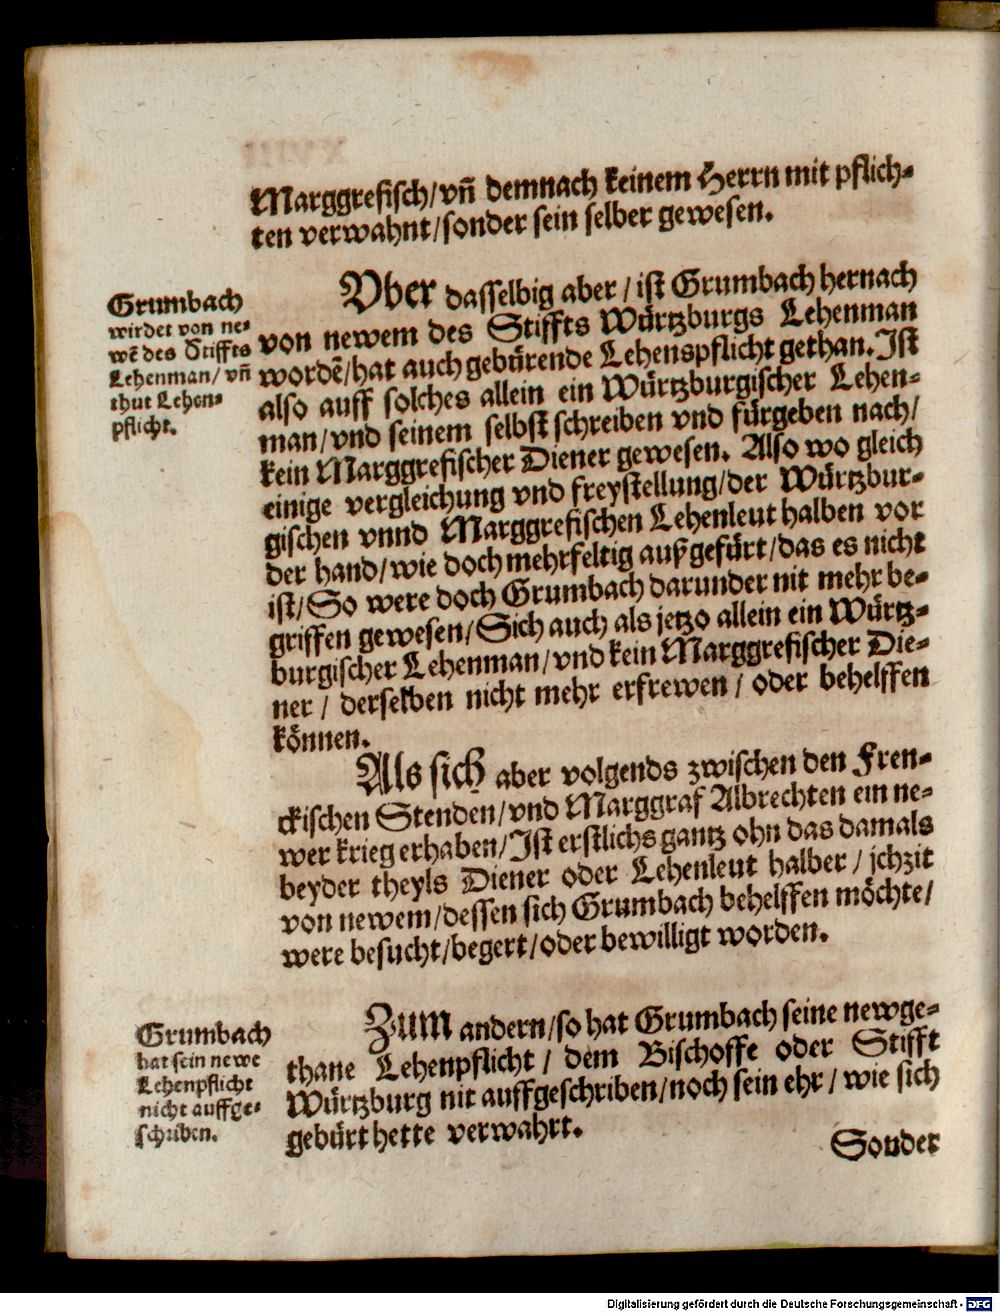 Marggrefisch/vñ demnach keinem Herrn mit pflich-
ten verwahnt/sonder sein selber gewesen.
Grumbach
wirdet von ne-
wē des Stiffts
Lehenman/ vñ
thut Lehen-
pflicht.
Vber dasselbig aber / ist Grumbach hernach
von newem des Stiffts Würtzburgs Lehenman
wordē/hat auch gebürende Lehenspflicht gethan. Ist
also auff solches allein ein Würtzburgischer Lehen-
man/vnd seinem selbst schreiben vnd fürgeben nach/
kein Marggrefischer Diener gewesen. Also wo gleich
einige vergleichung vnd freystellung/der Würtzbur-
gischen vnnd Marggrefischen Lehenleut halben vor
der hand/wie doch mehrfeltig außgefürt/das es nicht
ist/So were doch Grumbach darunder nit mehr be-
griffen gewesen/Sich auch als jetzo allein ein Würtz-
burgischer Lehenman/vnd kein Marggrefischer Die-
ner / derselben nicht mehr erfrewen / oder behelffen
können.
Als sich aber volgends zwischen den Fren-
ckischen Stenden/vnd Marggraf Albrechten ein ne-
wer krieg erhaben/Ist erstlichs gantz ohn das damals
beyder theyls Diener oder Lehenleut halber / jchzit
von newem/dessen sich Grumbach behelffen möchte/
were besucht/begert/oder bewilligt worden.
Grumbach
hat sein newe
Lehenpflicht
nicht auffge-
schriben.
Zum andern/so hat Grumbach seine newge-
thane Lehenpflicht / dem Bischoffe oder Stifft
Würtzburg nit auffgeschriben/noch sein ehr / wie sich
gebürt hette verwahrt.
Sonder
Digitalisierung gefördert durch die Deutsche Forschungsgemeinschaft - DFG